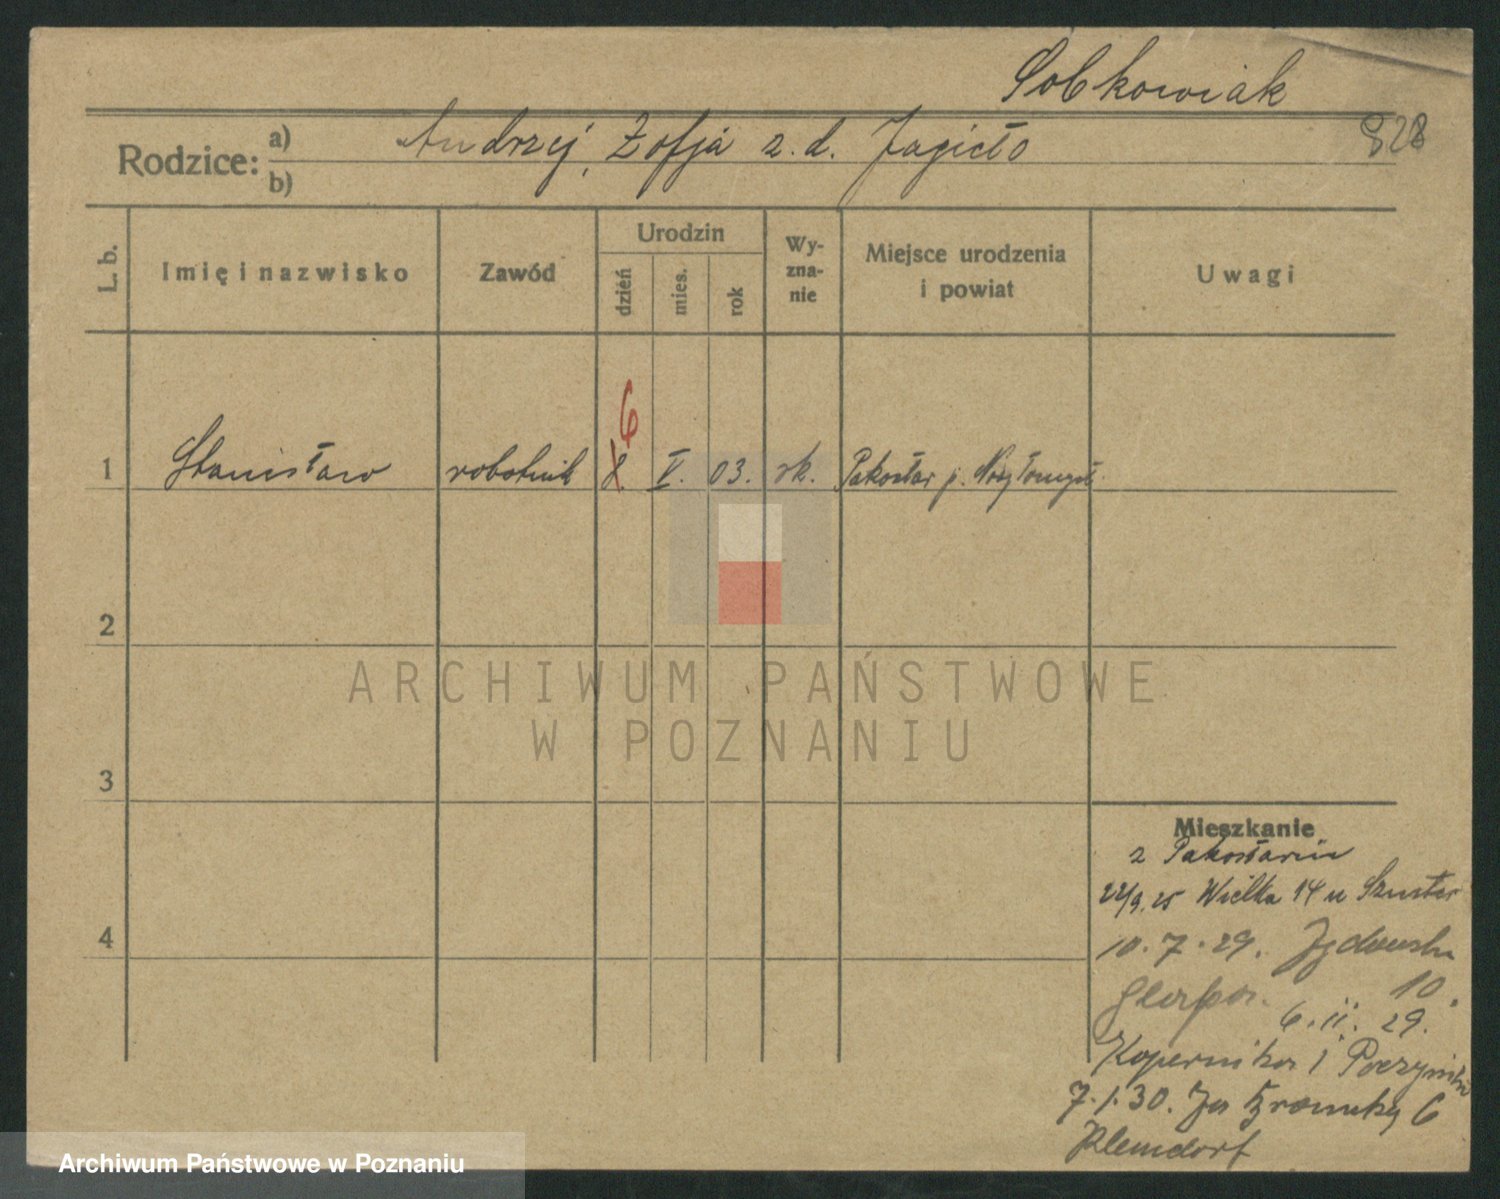 Sobkowiak
828
Rodzice: a) Andrzej, Zofja z. d. Jagieło
b)
L. b.
Imię i nazwisko
Zawód
Urodzin
dzień
mies.
rok
Wy-
zna-
nie
Miejsce urodzenia
i powiat
Uwagi
6
1 Stanisław robotnik 8. V. 03. rk. Pakosław p. Nowytomyśl
2
3
4
Mieszkanie
z Pakosławia
22/9.25 Wielka 14 u Szuster
10.7.29.
10.
6.11.29.
Kopernika 1
7.1.30. Za Bramką 6
Klemdorf
ARCHIWUM PAŃSTWOWE
W POZNANIU
Archiwum Państwowe w Poznaniu